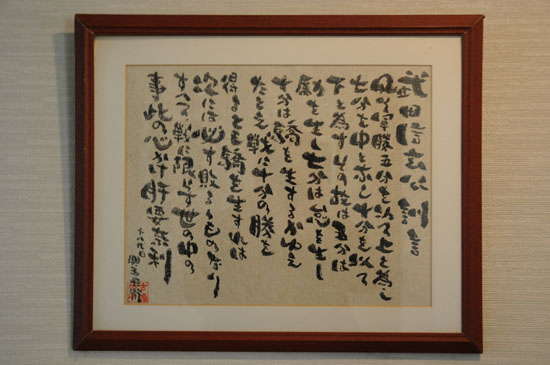 武田信玄公訓言
凡そ軍勝五分を以て上と為し
七分を中と為し十分を以て
下と為すその故は五分は
励を生し七分は怠を生し
十分は驕を生するがゆえ
たとえ戦に十分の勝を
得るとも驕を生すれは
次には必す敗るゝものなり
すべて戦に限らす世の中の
事此の心がけ肝要奈利